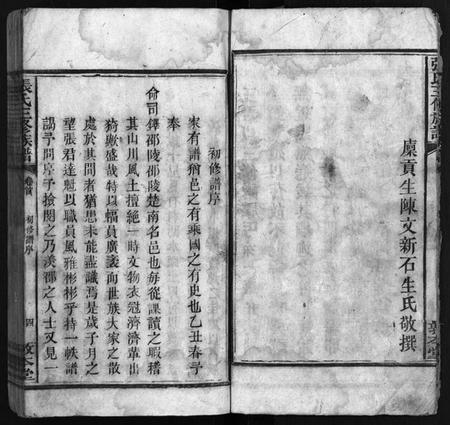 張氏三修族譜
廩貢生陳文新石生氏敬撰
初修譜序
家有譜猶邑之有乘國之有史也乙丑春予
奉
命司鐸邵陵邵陵楚南名邑也每從課讀之暇稽
其山川風土擅絕一時文物衣冠濟濟輩出
猗歟盛哉特以幅員廣袤而世族大家之散
處於其間者猶思未能盡識焉是歲子月之
望張君達魁以職員風雅彬彬乎持一帙譜
謁予問序予撿閱之乃溪鄉之人士又見一
張氏三修族譜
卷首
初修譜序
四
敦本堂